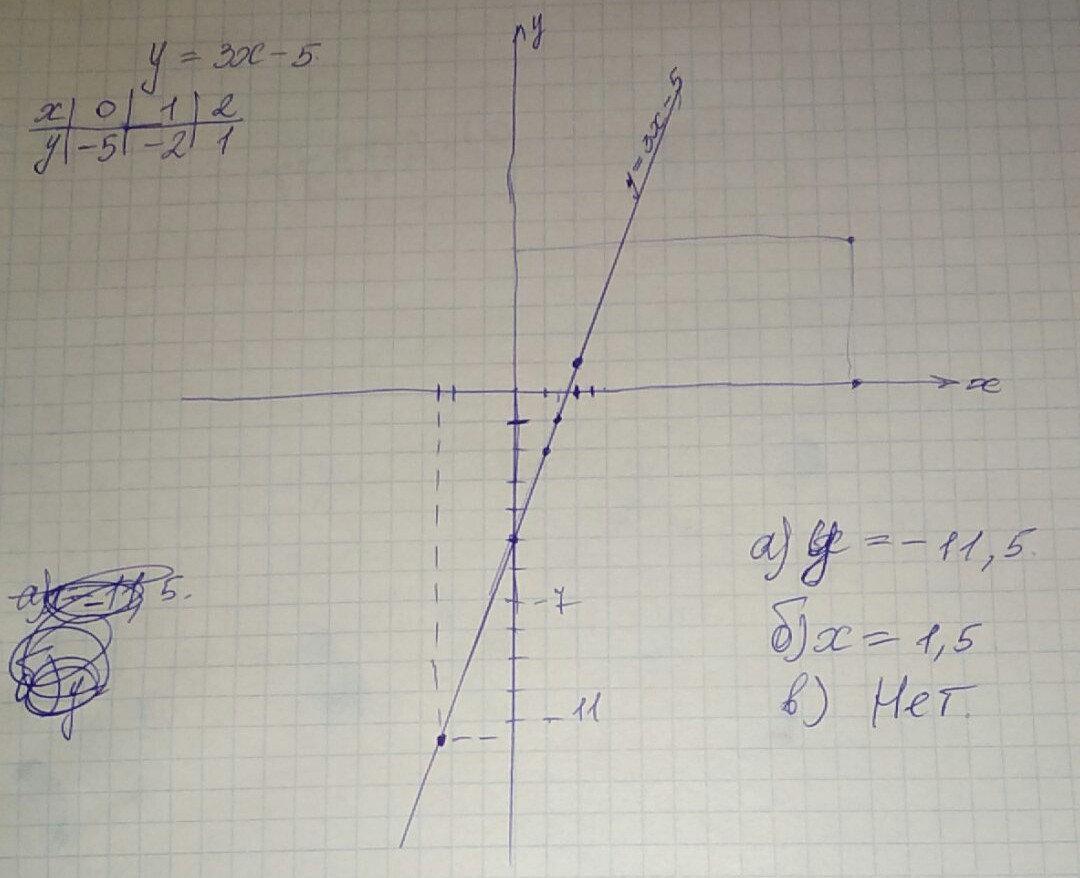 y = 3x - 5
x | 0 | 1 | 2
y | -5 | -2 | 1
y
y = 3x - 5
x
-7
-11
а) y = -11,5.
б) x = 1,5
в) Нет.
а) -11,5.
y